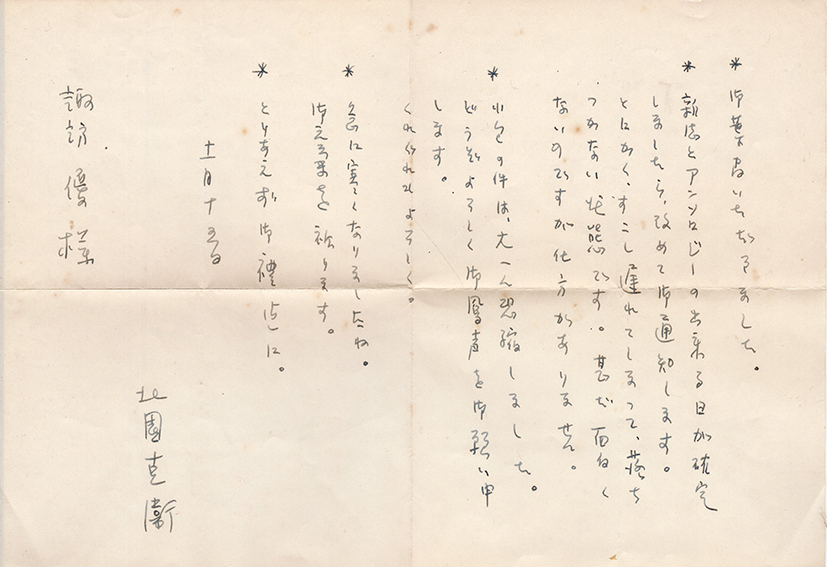 * 御葉書いただきました。
* 新誌とアンソロジーの出来る日が確定
しましたら、改めて御通知します。
とにかく、すこし遅れてしまって、落ち
つかない状態です。甚だ面白く
ないのですが仕方がありません。
* 小包の件は、大へん恐縮しました。
どうぞよろしく御鳳声を御願い申
します。
くれぐれもよろしく。
* 急に寒くなりましたね。
御元気を祈ります。
* とりあえず御禮迄に。
十一月十五日
北園克衛
諏訪 優様